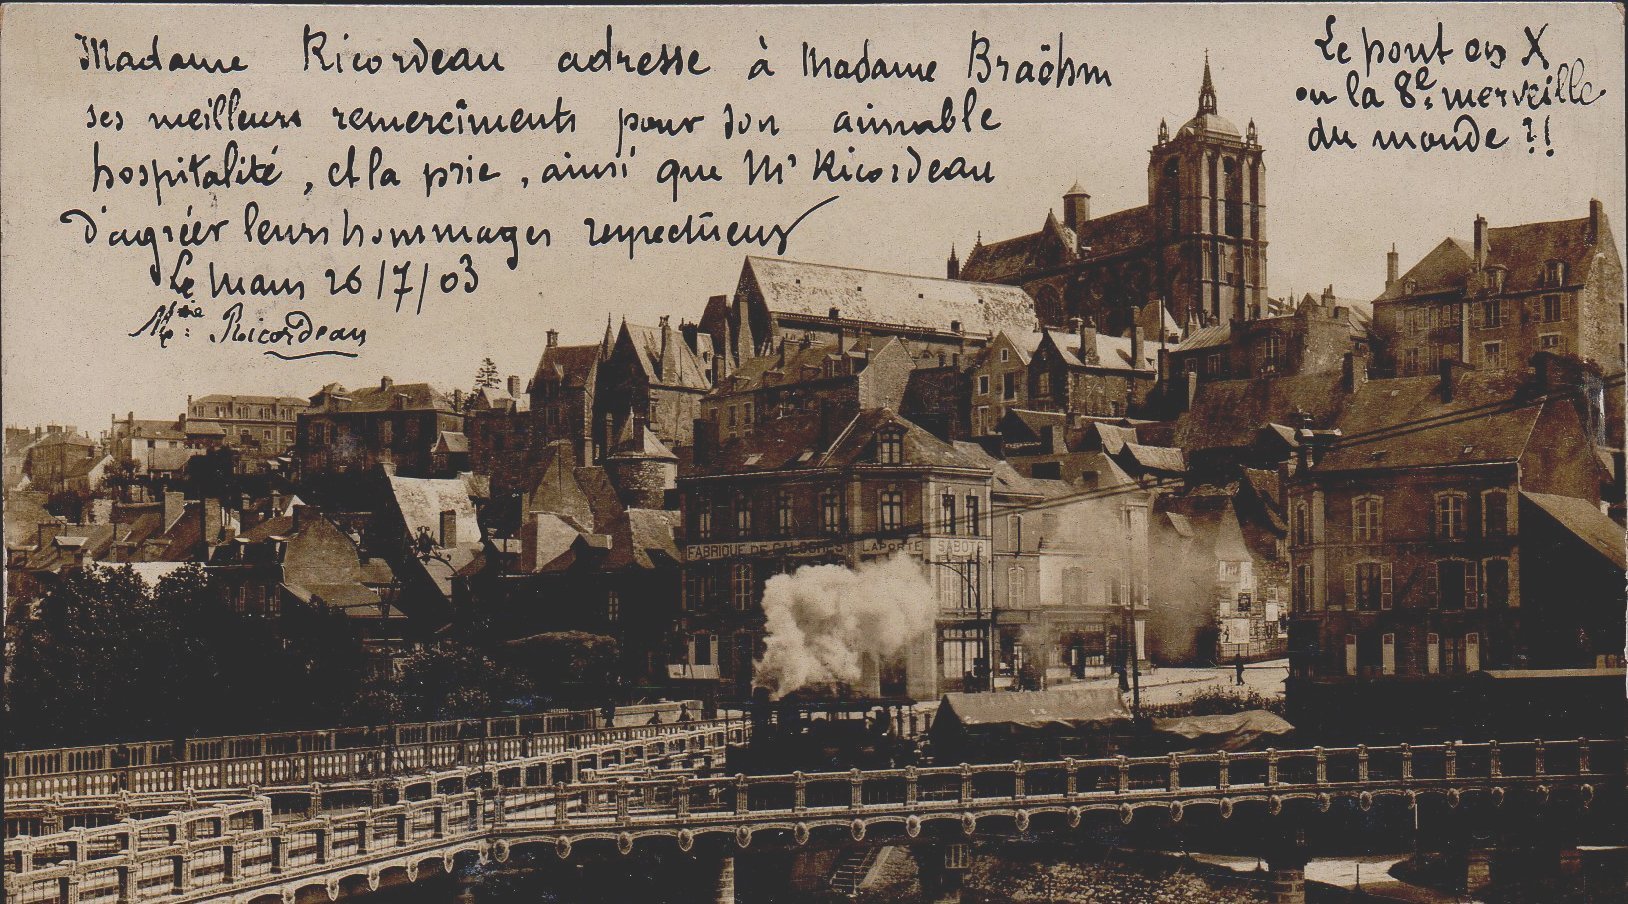 Madame Ricordeau adresse à Madame Braöhm
ses meilleurs remercîments pour son aimable
hospitalité, et la prie, ainsi que Mr Ricordeau
d'agréer leurs hommages respectueux
Le Mans 26/7/03
Mme: Ricordeau
Le pont en X
ou la 8e. merveille
du monde ?!
FABRIQUE DE GALOCHES LAPORTE SABOTS